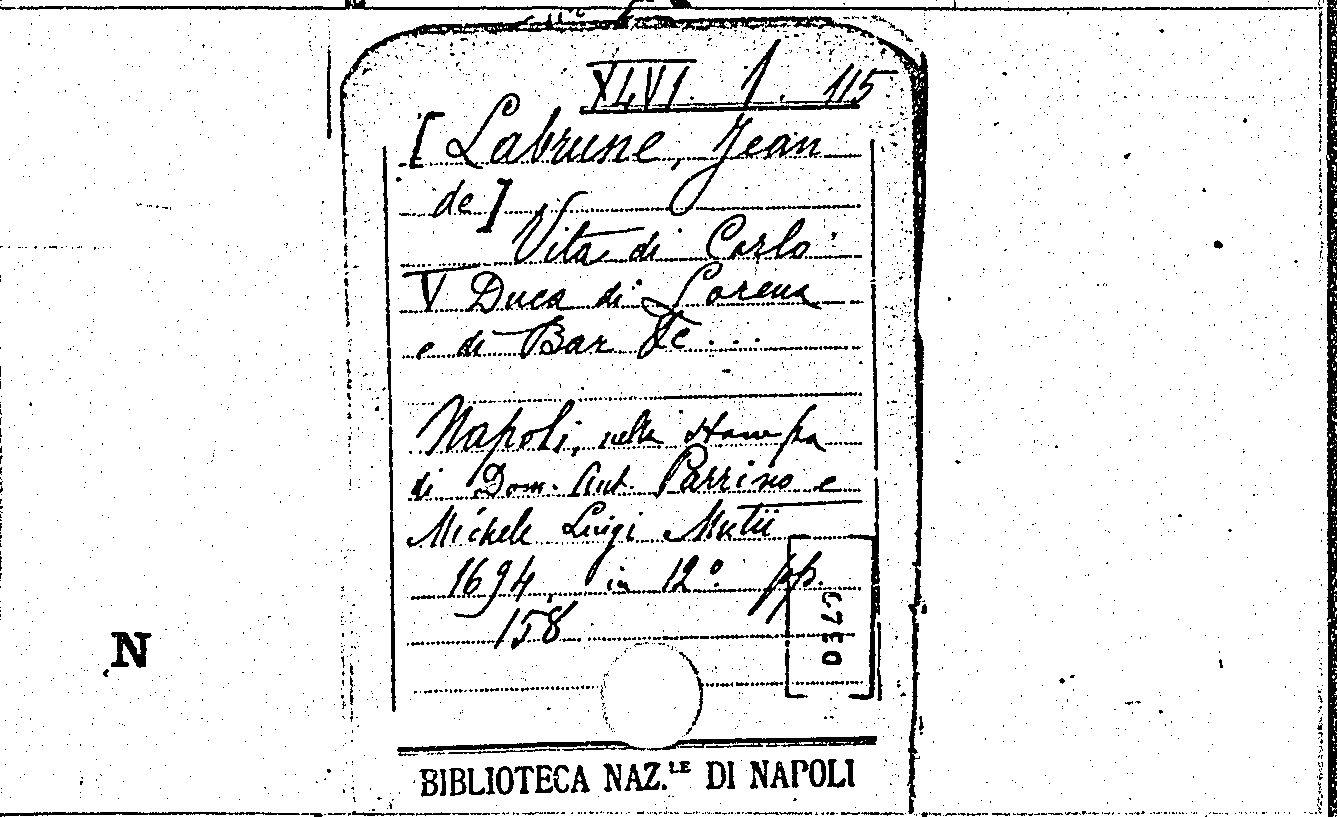 XLVI. J. 115
[Labrune, Jean
de]
Vita di Carlo
V Duca di Lorena
e di Bar &c...
Napoli, nella stampa
di Dom. Ant. Parrino e
Michele Luigi Mutii
1694, in 12° pp.
158
N
BIBLIOTECA NAZ.LE DI NAPOLI